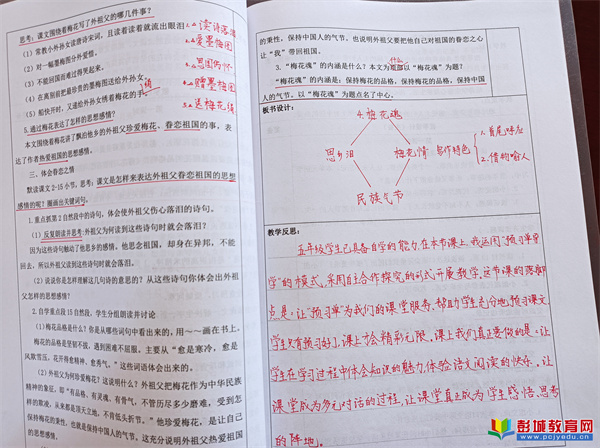 思考：课文围绕着梅花写了外祖父的哪几件事？
(1) 常教小外孙女读唐诗宋词，且读着读着就流出眼泪
(2) 对一幅墨梅图分外爱惜。
(3) 不能回国而难过得哭起来。
(4) 在离别前把最珍贵的墨梅图送给外孙女。
(5) 船快开时，又递给外孙女绣着梅花的手绢
1. 读诗落泪
2. 爱墨梅图
3. 思国伤怀
4. 赠墨梅图
5. 送梅花绢
5. 通过梅花表达了怎样的思想感情？
本文围绕着梅花讲了飘泊他乡的外祖父珍爱梅花、眷恋祖国的事，表
达了作者热爱祖国的思想感情。
三、体会眷恋之情
默读课文 2-15 小节，思考：课文是怎样来表达外祖父眷恋祖国的思想
感情的呢？圈画出关键词句。
1. 重点抓第 2 自然段中的诗句，体会使外祖父伤心落泪的诗句。
(1) 反复朗读并思考：外祖父为何读到这些诗句时就会落泪。
因为这些诗句触动了他思乡的感情。他思念祖国，却身在异邦，不能
回去，所以外祖父读到这些诗句时就会落泪。
(2) 说说你是怎样理解这几句诗的意思的？从这些诗句你体会出外祖
父怎样的思想感情？
2. 自学重点段 15 自然段，学生分组朗读并讨论
(1) 梅花品格是什么？你是从哪些词句中看出来的，用～～画在书上。
梅花的品格是坚韧不拔，遇到困难不屈服。主要从“愈是寒冷，愈是
风欺雪压，花开得愈精神，愈秀气。”这些词语体会出来的。
(2) 外祖父为何珍爱梅花？这说明什么？外祖父把梅花作为中华民族
精神的象征，即“有品格、有灵魂、有骨气，不管历尽多少磨难，受到怎
样的欺凌，从来都是顶天立地，不肯低头折节。”他珍爱梅花，是让自己
保持梅花的秉性，也就是保持中国人的气节。这充分说明外祖父热爱祖国
的秉性，保持中国人的气节。也说明外祖父要把他自己对祖国的眷恋之心
让“我”带回祖国。
3. “梅花魂”的内涵是什么？本文为什么以“梅花魂”为题？
“梅花魂”的内涵是：保持梅花的品格，保持梅花的品格，保持中国
人的气节。以“梅花魂”为题点名了中心。
板书设计：
4. 梅花魂
思乡泪 梅花情 写作特色
1. 首尾呼应
2. 借物喻人
民族气节
教学反思：
五年级学生已具备自学的能力，在本节课上，我运用“预习单导
学”的模式，采用自主合作探究的形式开展教学。这节课的落脚
点是：让“预习单”为我们的课堂服务，帮助学生充分地预习课文。
学生只有预习好了，课上才会精彩无限。课上我们真正要做的是：让
学生在学习过程中体会知识的魅力，体验语文阅读的快乐。让
课堂成为多元对话的过程，让课堂真正成为学生感悟、思考
的阵地。
彭城教育网
www.pcjyedu.cn